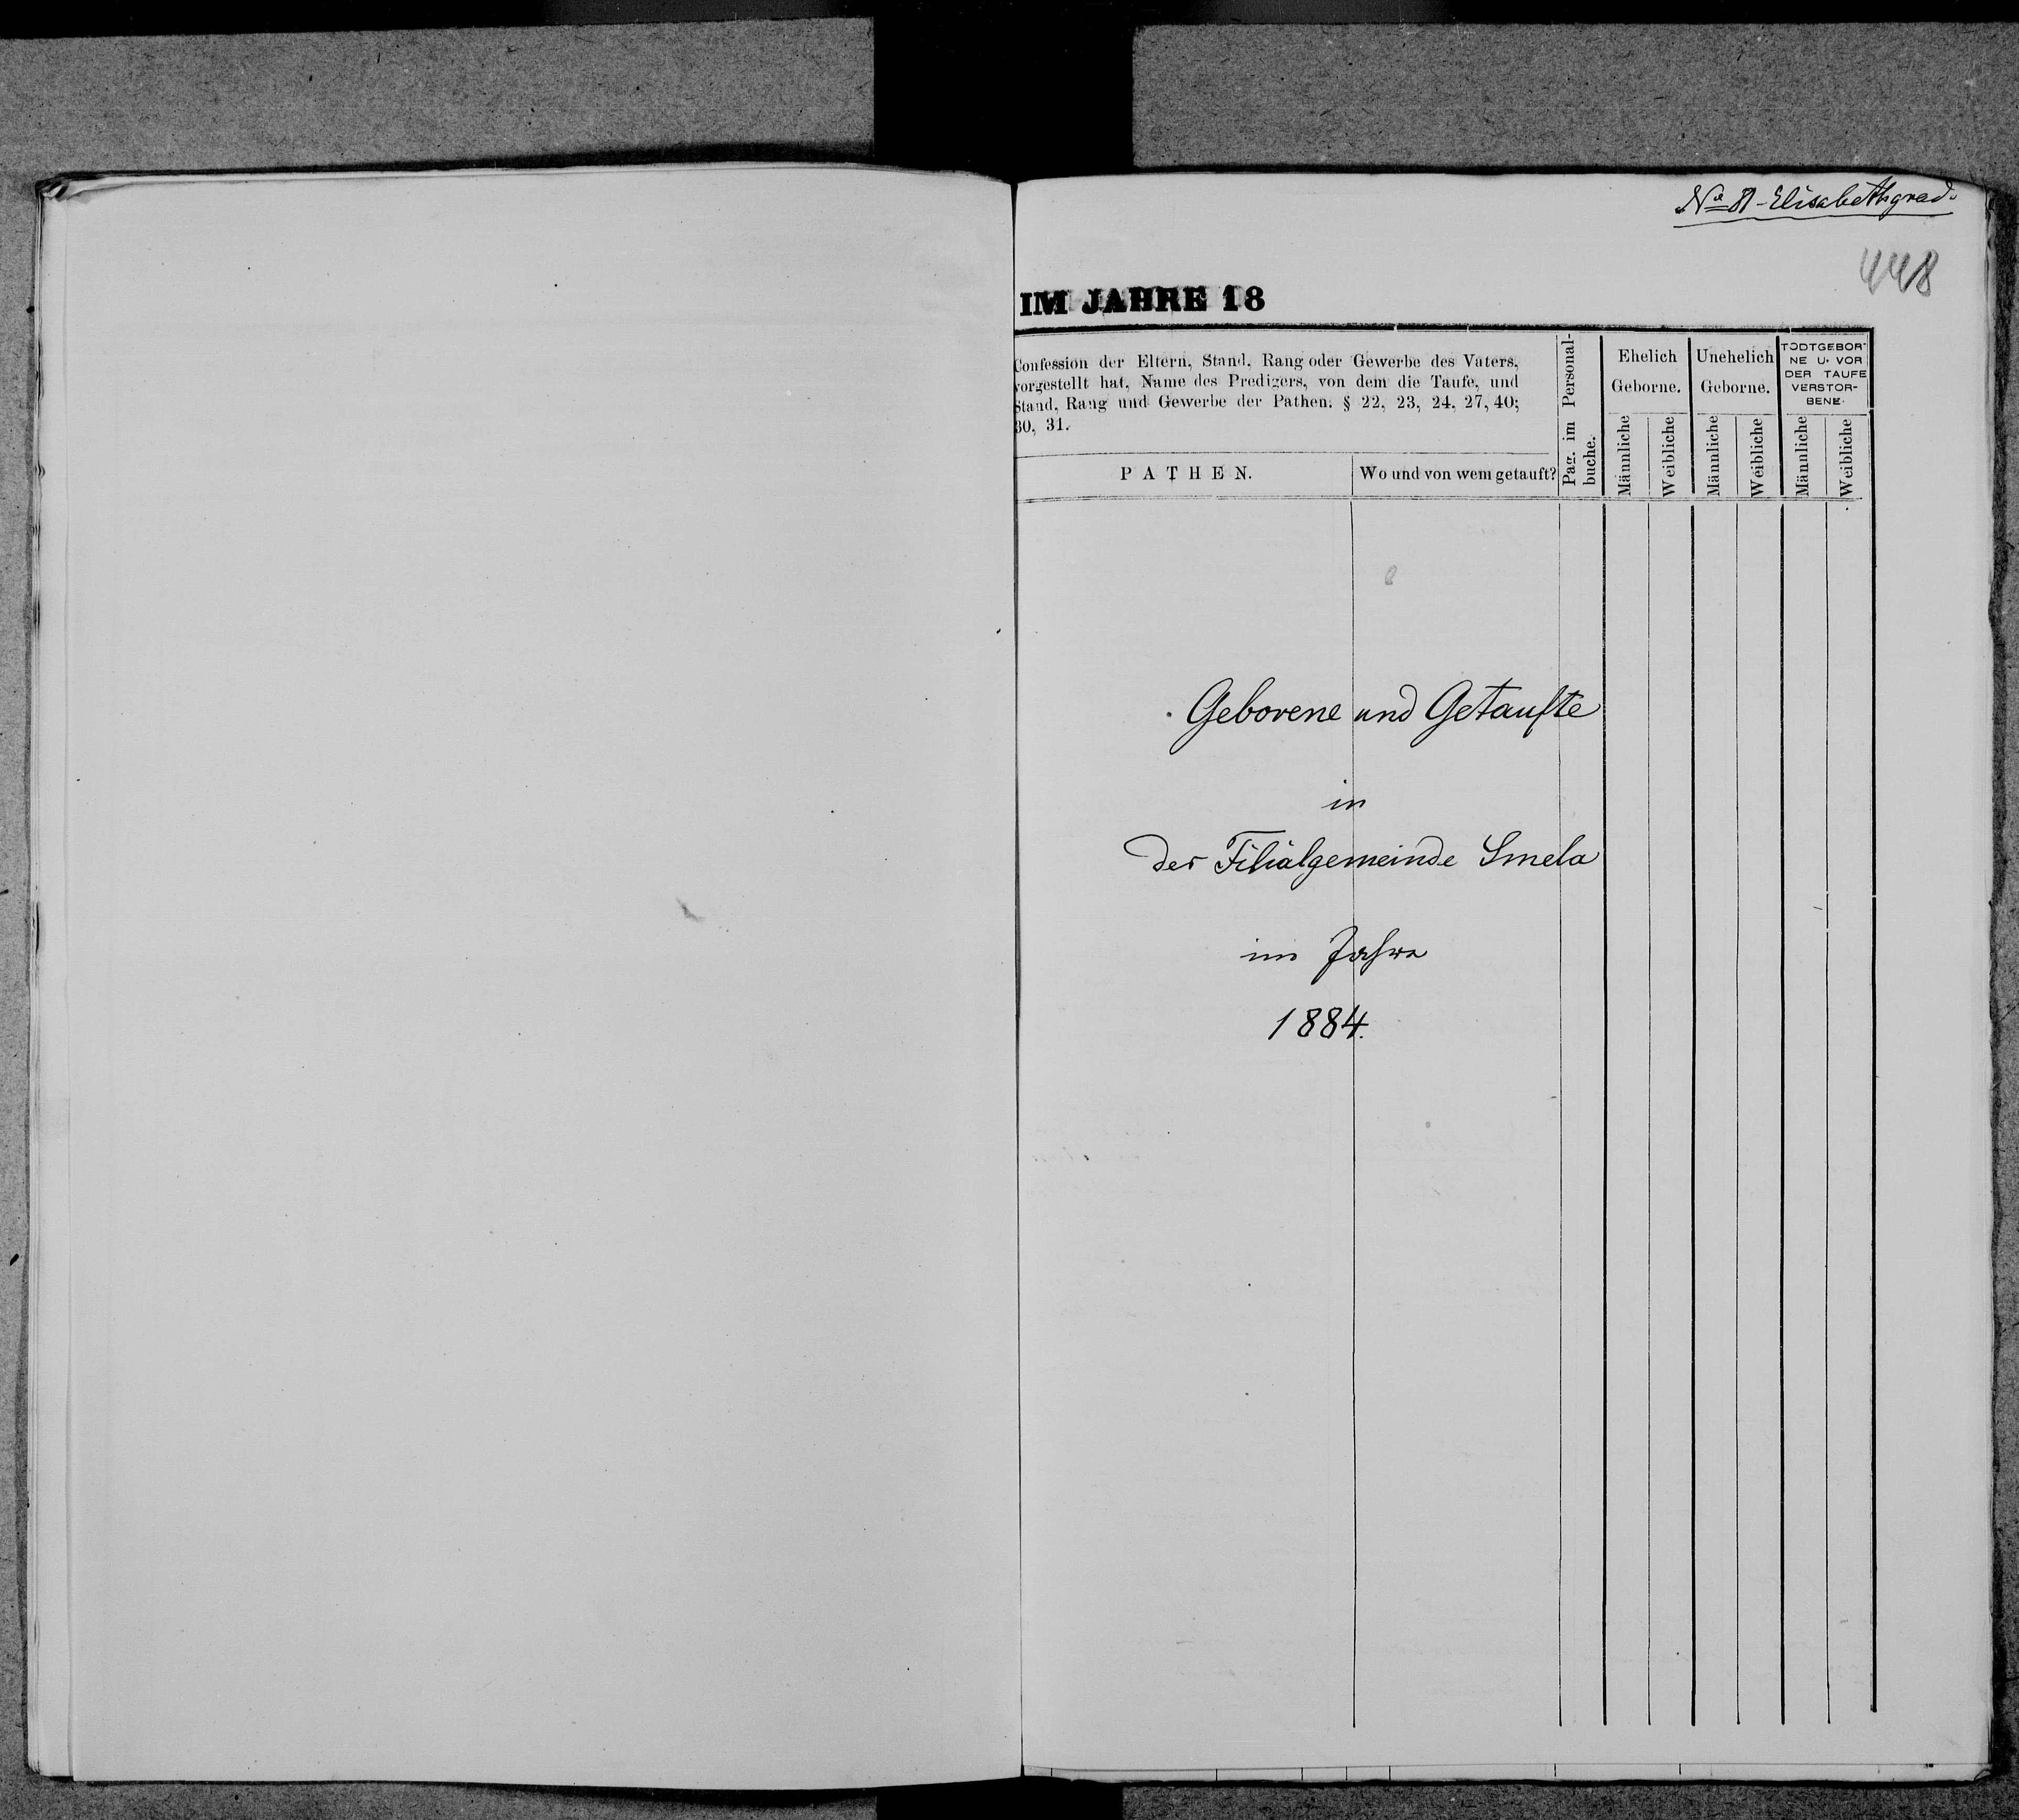 № 8 - Elisabethgrad.
448
IM JAHRE 18
Confession der Eltern, Stand, Rang oder Gewerbe des Vaters,
vorgestellt hat, Name des Predigers, von dem die Taufe, und
Stand, Rang und Gewerbe der Pathen. § 22, 23, 24, 27, 40;
30, 31.
PATHEN.
Wo und von wem getauft?
Pag. im Personal-
buche.
Ehelich
Geborne.
Männliche
Weibliche
Unehelich
Geborne.
Männliche
Weibliche
TODTGEBOR-
NE U. VOR
DER TAUFE
VERSTOR-
BENE.
Männliche
Weibliche
Geborene und Getaufte
in
der Filialgemeinde Smela
im Jahre
1884.